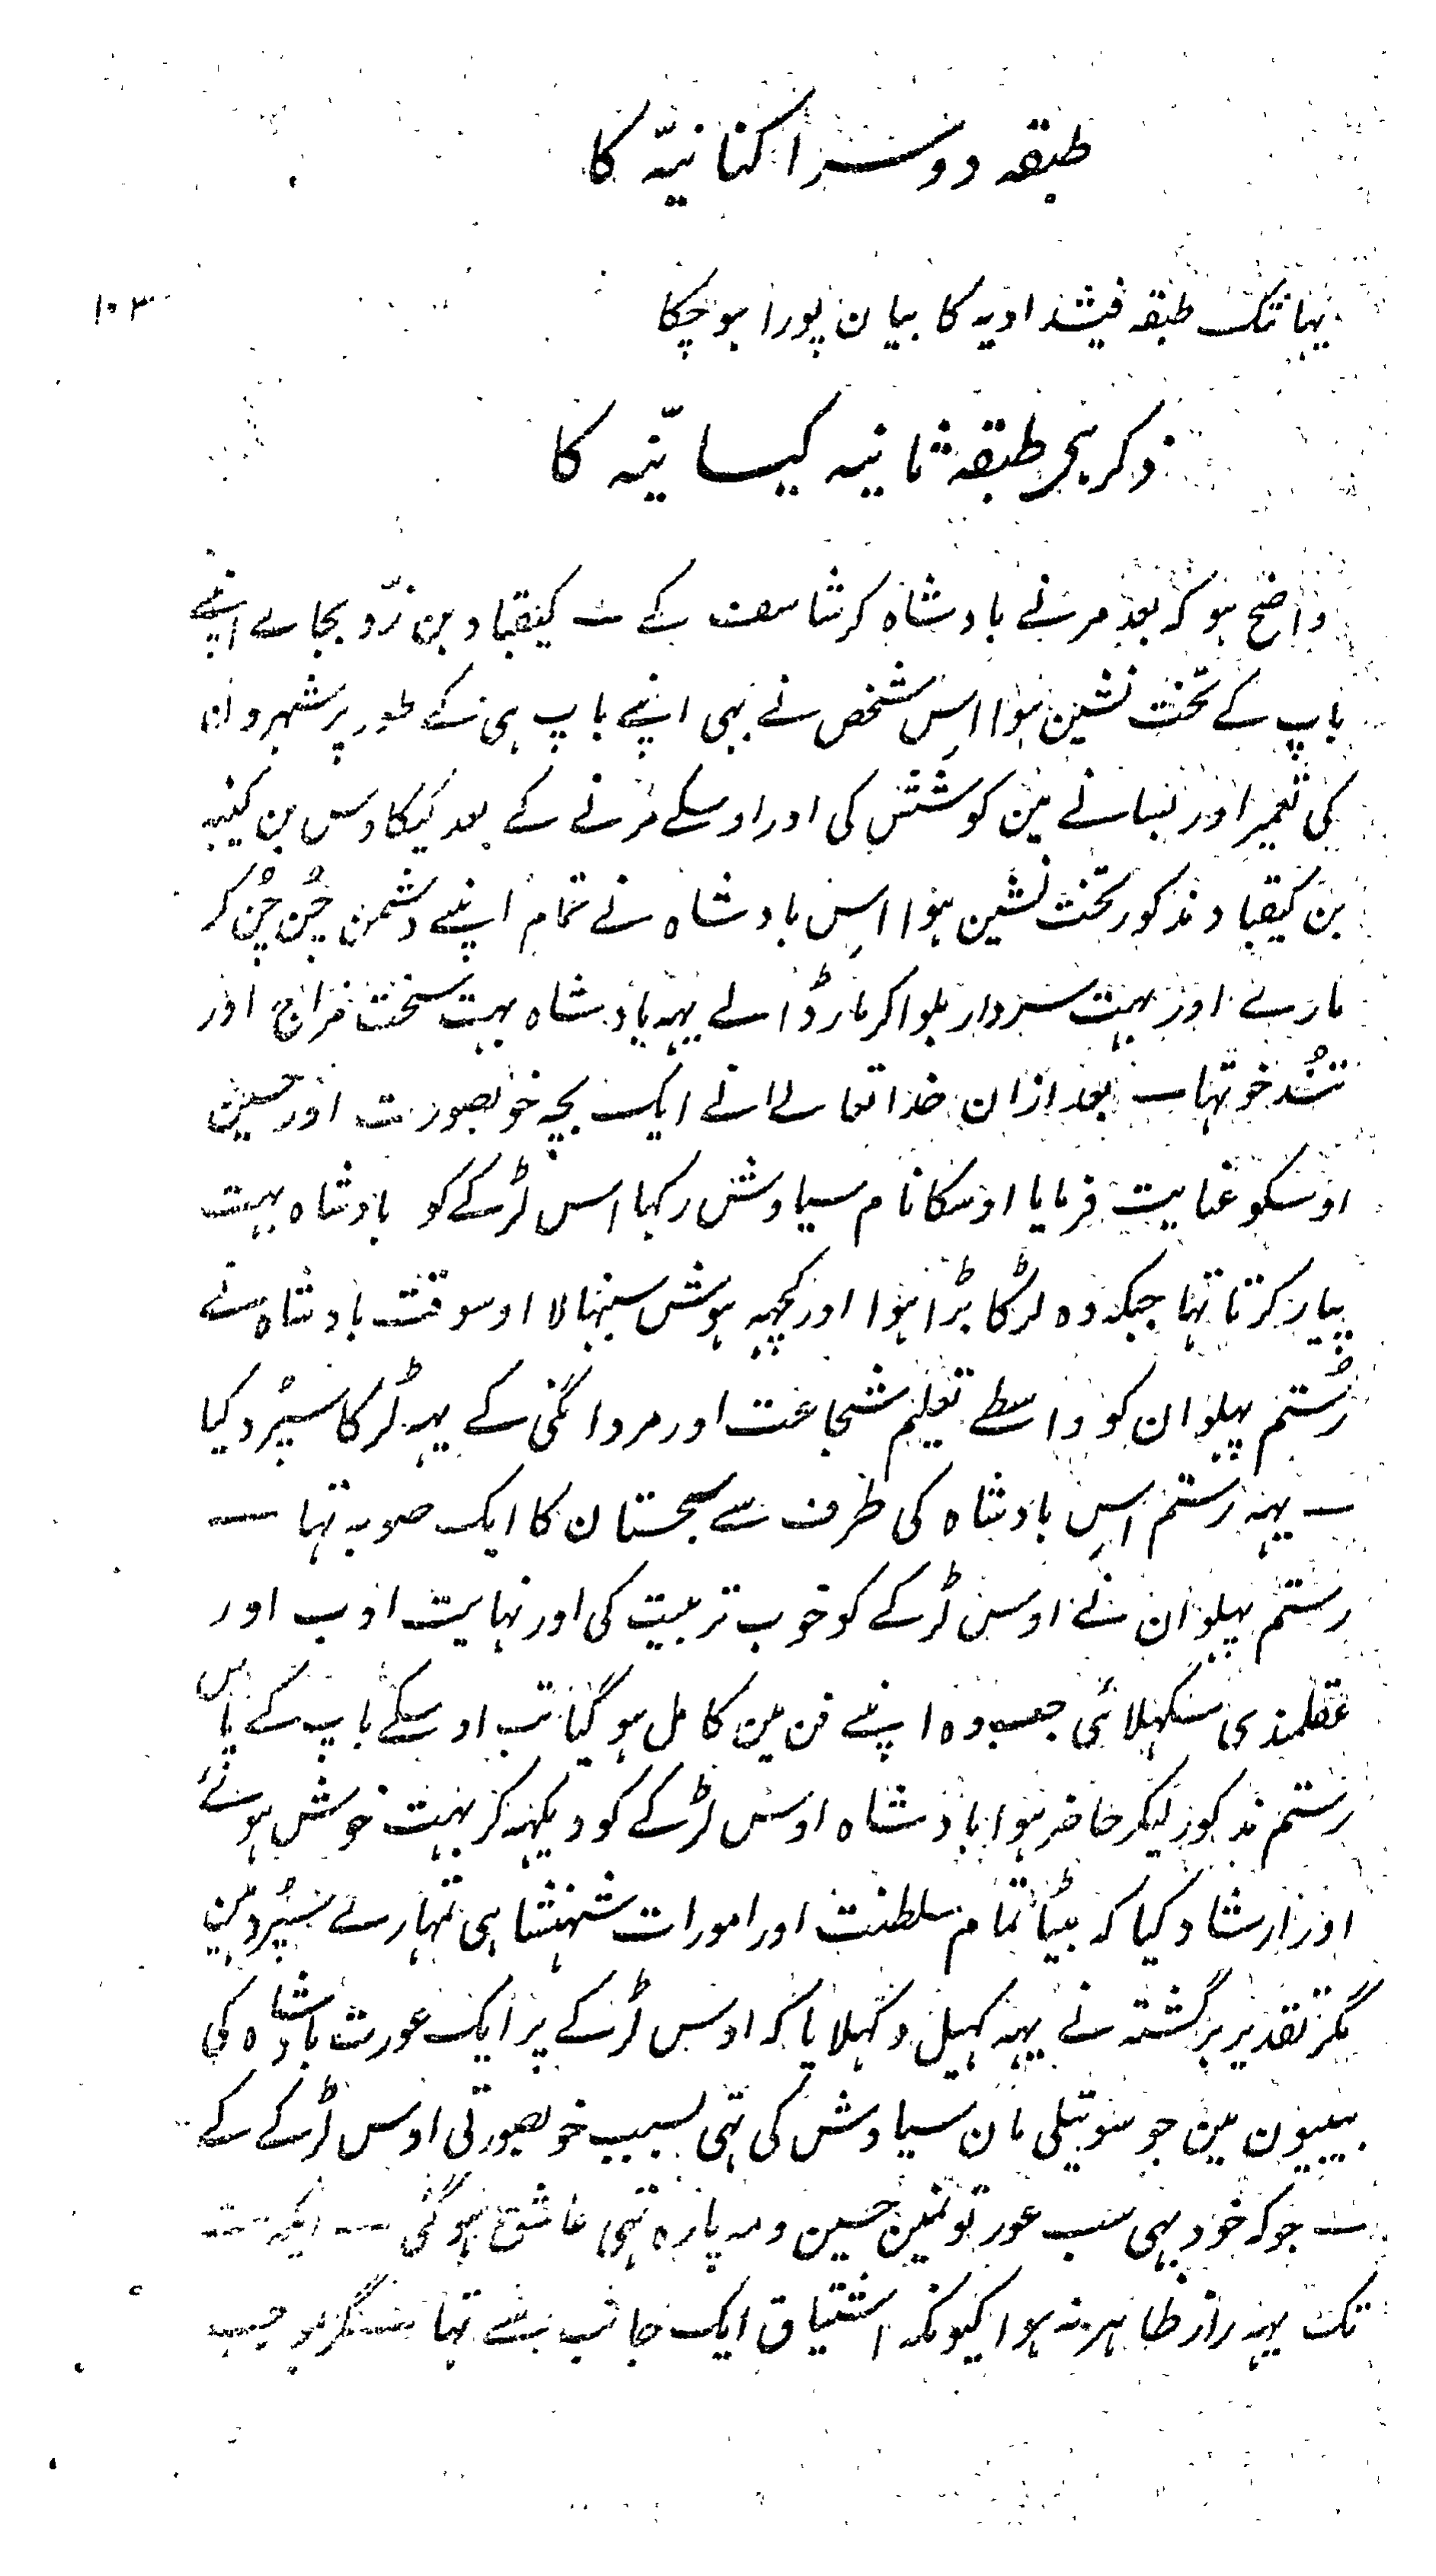 طبقہ دوسرا کنانیّہ کا
۱۰۳
یہانتک طبقہ فیشدادیہ کا بیان پورا ہوچکا
ذکر طبقہ ثانیہ کیسانیّہ کا
واضح ہو کہ بعد مرنے بادشاہ کرشاسف کے کیقباد بن زوّ بجاے اپنے
باپ کے تخت نشین ہوا اِس شخص نے بہی اپنے باپ ہی کے طور پر شہرون
کی تعمیر اور بنانے مین کوشش کی اور اوسکے مرنے کے بعد کیکاوس بن کینیہ
بن کیقباد مذکور تخت نشین ہوا اِس بادشاہ نے تمام اپنے دشمن چُن چُن کر
مارے اور بہت سردار بلواکر مارڈالے یہہ بادشاہ بہت سخت مزاج اور
تُند خو تہا ۔ بعد ازان خدا تعالے انے ایک بچہ خوبصورت اور حسین
اوسکو عنایت فرمایا اوسکا نام سیاوش رکہا اس لڑکے کو بادشاہ بہت
پیار کرتا تہا جبکہ وہ لڑکا بڑا ہوا اور کچہہ ہوش سنبہالا اوسوقت بادشاہ نے
رُستم پہلوان کو واسطے تعلیم شجاعت اور مردانگی کے یہہ لڑکا سپُرد کیا
— یہہ رستم اِس بادشاہ کی طرف سے سجستان کا ایک صوبہ تہا —
رستم پہلوان نے اوس لڑکے کو خوب تربیت کی اور نہایت ادب اور
عقلمندی سکہلائی جب وہ اپنے فن مین کامل ہوگیا تب اوسکے باپ کے پاس
رستم مذکور لیکر حاضر ہوا بادشاہ اوس لڑکے کو دیکہہ کر بہت خوش ہوئے
اور ارشاد کیا کہ بیٹا تمام سلطنت اور امورات شہنشاہی تمہارے سپُرد ہین
مگر تقدیر برگشتہ نے یہہ کہیل دکہلایا کہ اوس لڑکے پر ایک عورت بادشاہ کی
بیبیون مین جو سوتیلی مان سیاوش کی تہی بسبب خوبصورتی اوس لڑکے کے
— جوکہ خود بہی سب عورتونمین حسین و مہ پارہ تہی عاشق ہوگئی —
تک یہہ راز ظاہر نہ ہوا کیونکہ اشتیاق ایک جانب سے تہا مگر جب